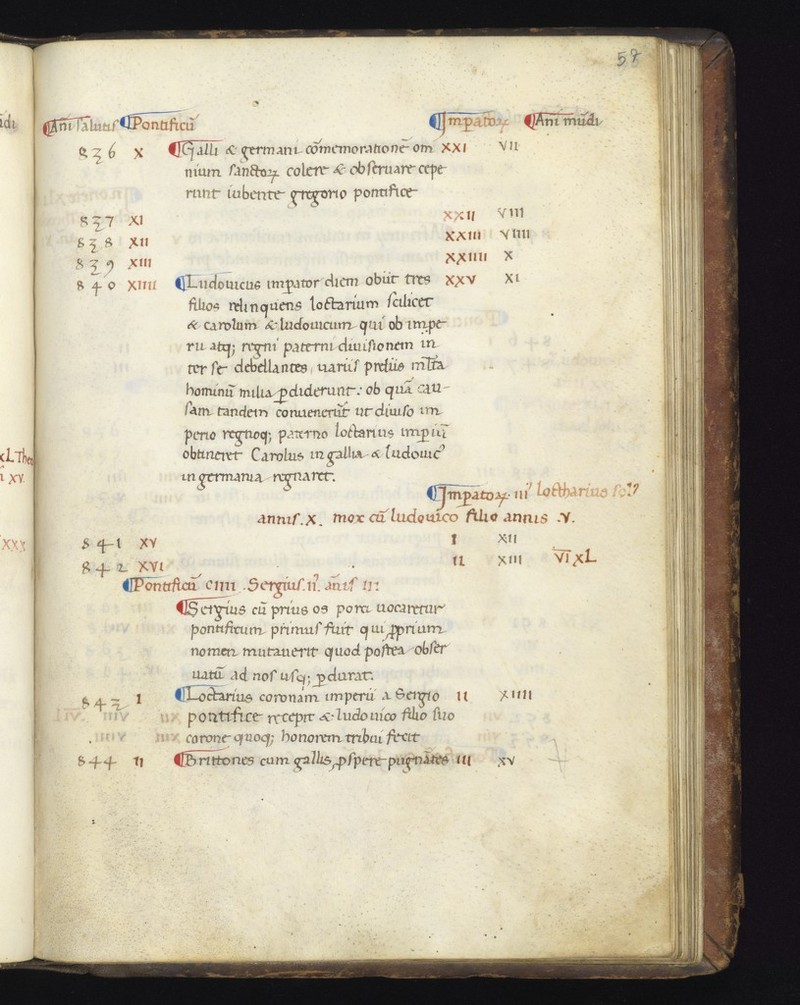 58
Ani salutis Pontificū Impatoꝝ Ani mūdi
836 X Galli & germani cōmemorationē om XXI VII
nium sanctoꝝ colere & obseruare cepe
runt iubente gregorio pontifice
837 XI XXII VIII
838 XII XXIII VIIII
839 XIII XXIIII X
840 XIIII Ludouicus imꝑator diem obiit tres XXV XI
filios relinquens loctarium scilicet
& carolum & ludouicum qui ob impe
rii atq; regni paterni diuisionem in
ter se debellantes, uariis preliis mlta
hominū milia ꝑdiderunt: ob quā cau-
sam tandem conuenerūt ut diuiso im
perio regnoq; paterno loctarius imꝑiū
obtineret Carolus in gallia & ludouicꝰ
in germania regnaret.
Impatoꝝ. Loctharius
annis .X. mox cū ludouico filio annis .V.
841 XV I XII
842 XVI II XIII VI XL
Pontificū CIIII. Sergius .II. anis III
Sergius cū prius os porci uocaretur
pontificum primus fuit qui ꝓprium
nomen mutauerit quod postea obser
uatū ad nos usq; ꝑdurat.
843 I Loctarius coronam imperii a Sergio II XIIII
pontifice recepit & ludouico filio suo
corone quoq; honorem tribui fecit
844 II Brittones cum gallis ꝓspere pugnātes III XV